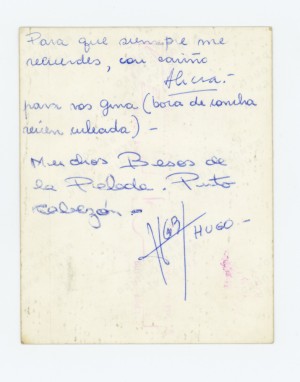 Para que siempre me
recuerdes, con cariño
Alicia.-
para vos gma (boca de concha
recien culeada) -
Muchos Besos de
la Pelada. Puto
cabezón -
HUGO -